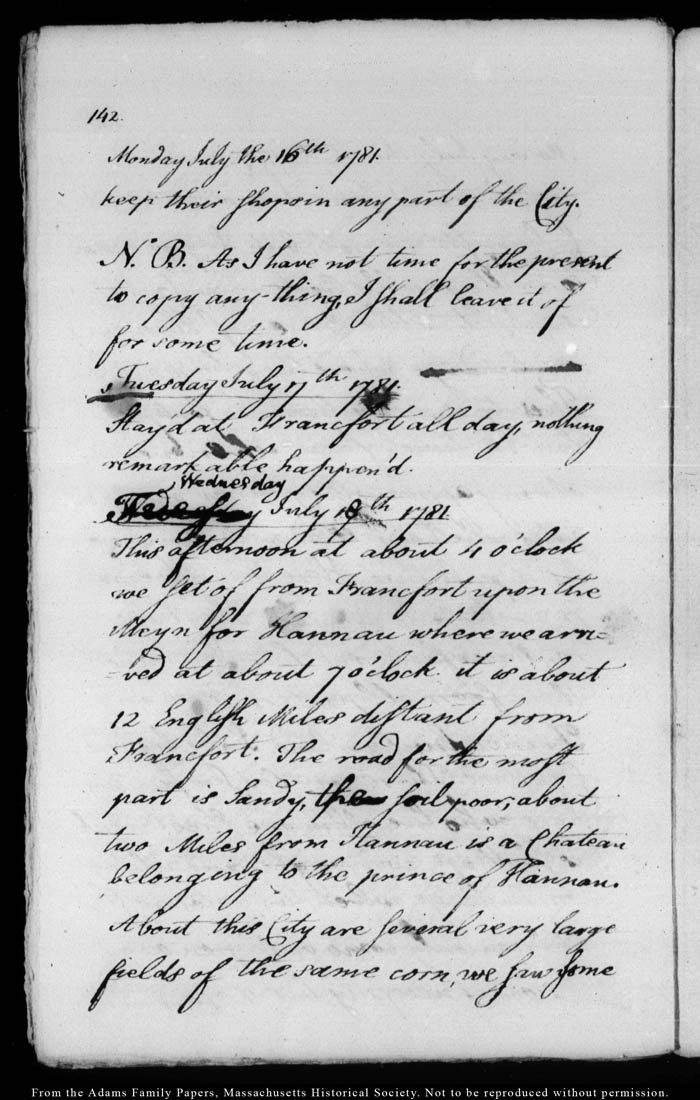 142.
Monday July the 16th 1781.
keep their shops in any part of the City.
N.B. As I have not time for the present
to copy any-thing, I shall leave it of
for some time.
Tuesday July 17th 1781.
Stay'd at Francfort all day, nothing
remarkable happen'd.
Wednesday
July 18th 1781
This afternoon at about 4 o'clock
we set of from Francfort upon the
Meyn for Hannau where we arri=
=ved at about 7 o'clock. it is about
12 English Miles distant from
Francfort. The road for the most
part is Sandy, the soil poor; about
two Miles from Hannau is a Chateau
belonging to the prince of Hannau.
About this City are several very large
fields of the same corn, we saw some
From the Adams Family Papers, Massachusetts Historical Society. Not to be reproduced without permission.